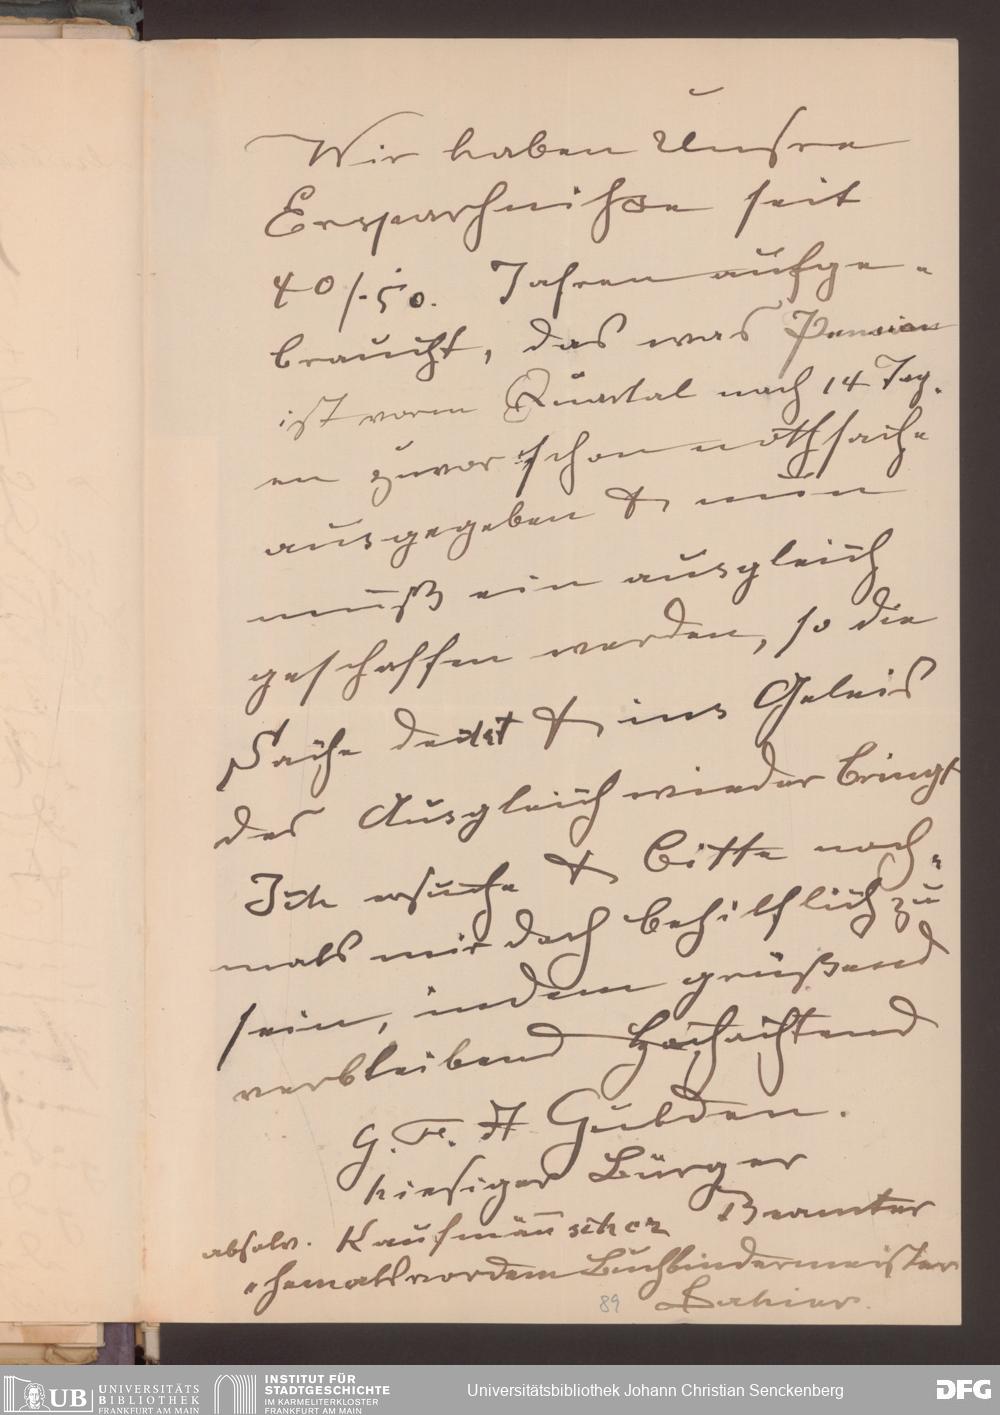 Wir haben Unsre
Ersparhniße seit
40/-50. Jahren aufge-
braucht, das was Pension
ist vorm Quartal nach 14 Tag-
en zuvor schon nothsach
ausgegeben & nun
muß ein ausgleich
geschaffen werden, so die
Sache deckt & ins Geleis
des Ausgleich wieder bringt
Ich ersuche & bitte noch-
mals mir doch behilflich zu
sein, indem grüßend
verbleibend Hochachtend
G. F. A Gulden.
hiesiger Bürger
absolv. Kaufmännscher Beamter
ehemals vordem Buchbindermeister
dahier.
89
UB UNIVERSITÄTS
BIBLIOTHEK
FRANKFURT AM MAIN
INSTITUT FÜR
STADTGESCHICHTE
IM KARMELITERKLOSTER
FRANKFURT AM MAIN
Universitätsbibliothek Johann Christian Senckenberg
DFG